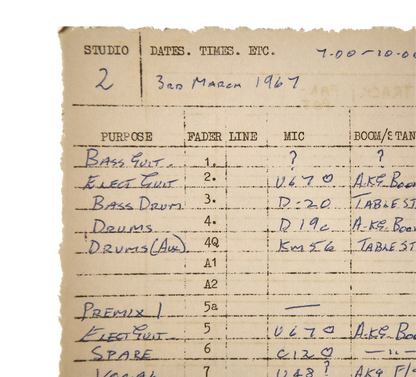 STUDIO DATES. TIMES. ETC. 7-00-10-0
2 3RD MARCH 1967
PURPOSE FADER LINE MIC BOOM/STAN
BASS GUIT. 1. ? ?
ELECT GUIT 2. U67 A.KG. BOO
BASS DRUM 3. D-20 TABLE ST
DRUMS 4. D19c A-KG. BOO
DRUMS (AUX) 4Q KM56 TABLE ST
A1
A2
PREMIX 1 5a —
ELECT GUIT 5 U67 A.KG. BO
SPARE 6 C12 — " —
VOCAL 7 U48 ? AKG F/